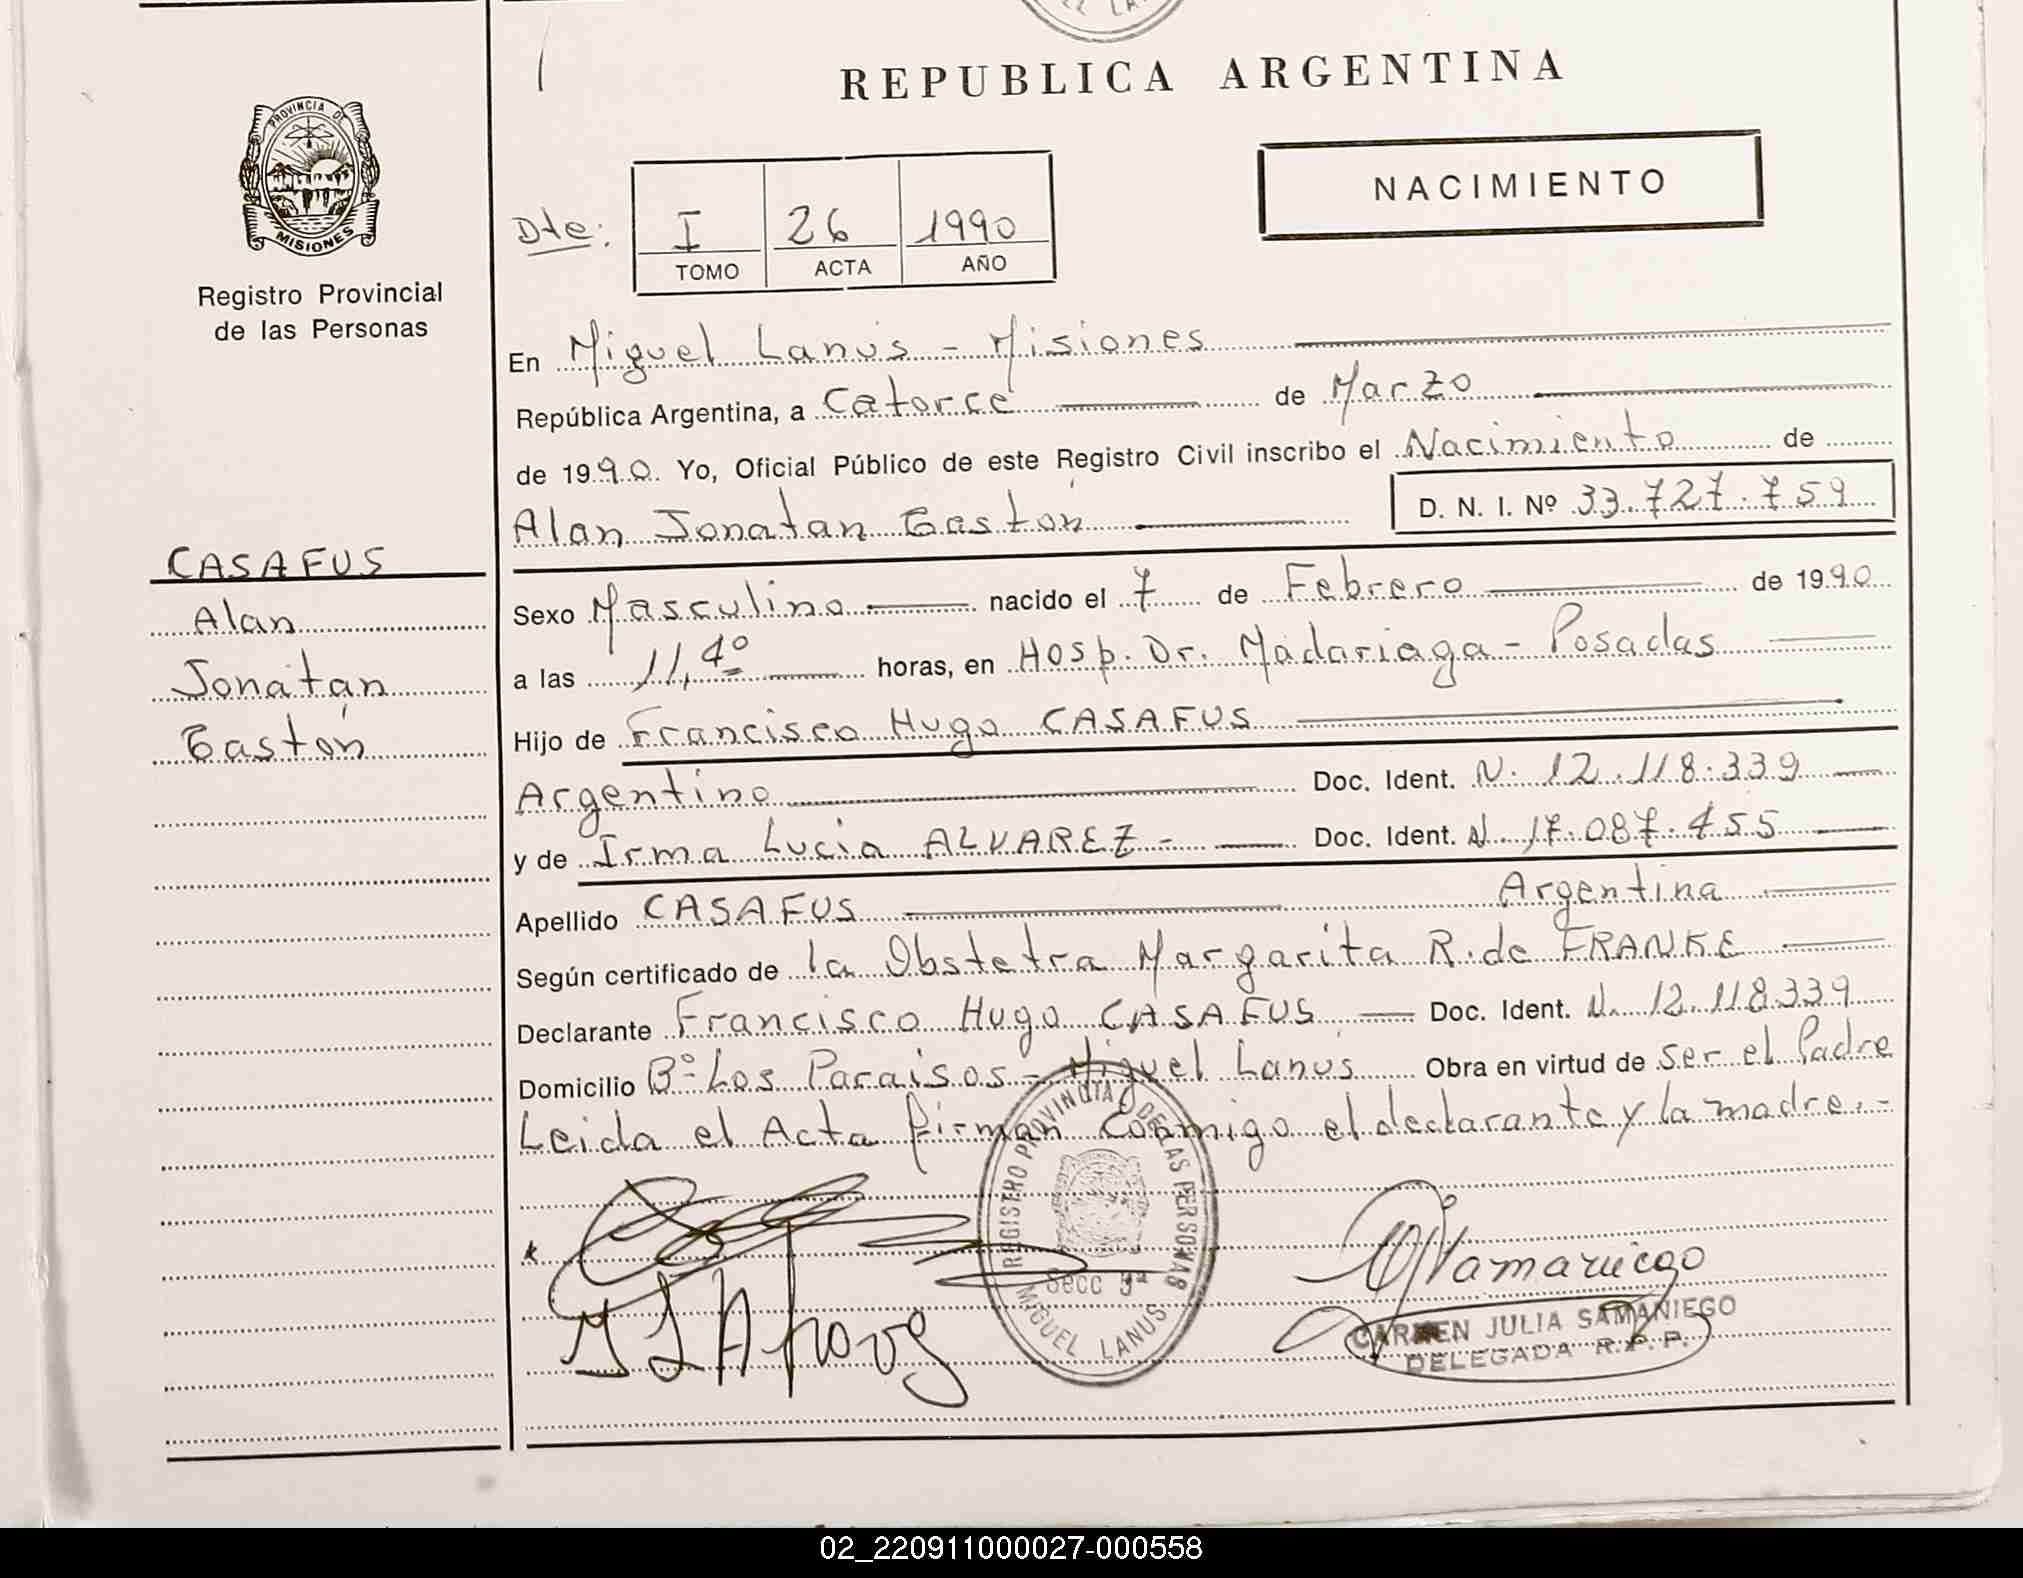 REPUBLICA ARGENTINA
PROVINCIA DE
MISIONES
Registro Provincial
de las Personas
NACIMIENTO
Dte: I 26 1990
TOMO ACTA AÑO
En Miguel Lanús - Misiones
República Argentina, a Catorce de Marzo
de 1990. Yo, Oficial Público de este Registro Civil inscribo el Nacimiento de
Alan Jonatan Gastón D. N. I. Nº 33.727.759
CASAFUS
Alan
Jonatan
Gastón
Sexo Masculino nacido el 7 de Febrero de 1990
a las 11,40 horas, en Hosp. Dr. Madariaga - Posadas
Hijo de Francisco Hugo CASAFUS
Argentino Doc. Ident. N. 12.118.339
y de Irma Lucia ALVAREZ - Doc. Ident. N. 17.087.455
Apellido CASAFUS Argentina
Según certificado de la Obstetra Margarita R. de FRANKE
Declarante Francisco Hugo CASAFUS Doc. Ident. N. 12.118.339
Domicilio Bº Los Paraisos - Miguel Lanús Obra en virtud de ser el Padre
Leida el Acta firman conmigo el declarante y la madre.-
REGISTRO PROVINCIAL DE LAS PERSONAS
Secc 9ª
MIGUEL LANUS
CARMEN JULIA SAMANIEGO
DELEGADA R.P.P.
02_220911000027-000558